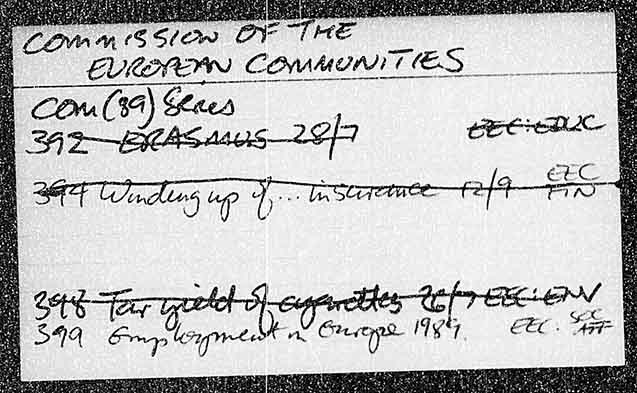 COMMISSION OF THE
EUROPEAN COMMUNITIES
COM(89) Series
392 ERASMUS 28/7 EEC:EDUC
394 Winding up of... insurance 12/9 EEC FIN
398 Tar yield of cigarettes 26/7 EEC:ENV
399 Employment in Europe 1989. EEC. SOC AFF